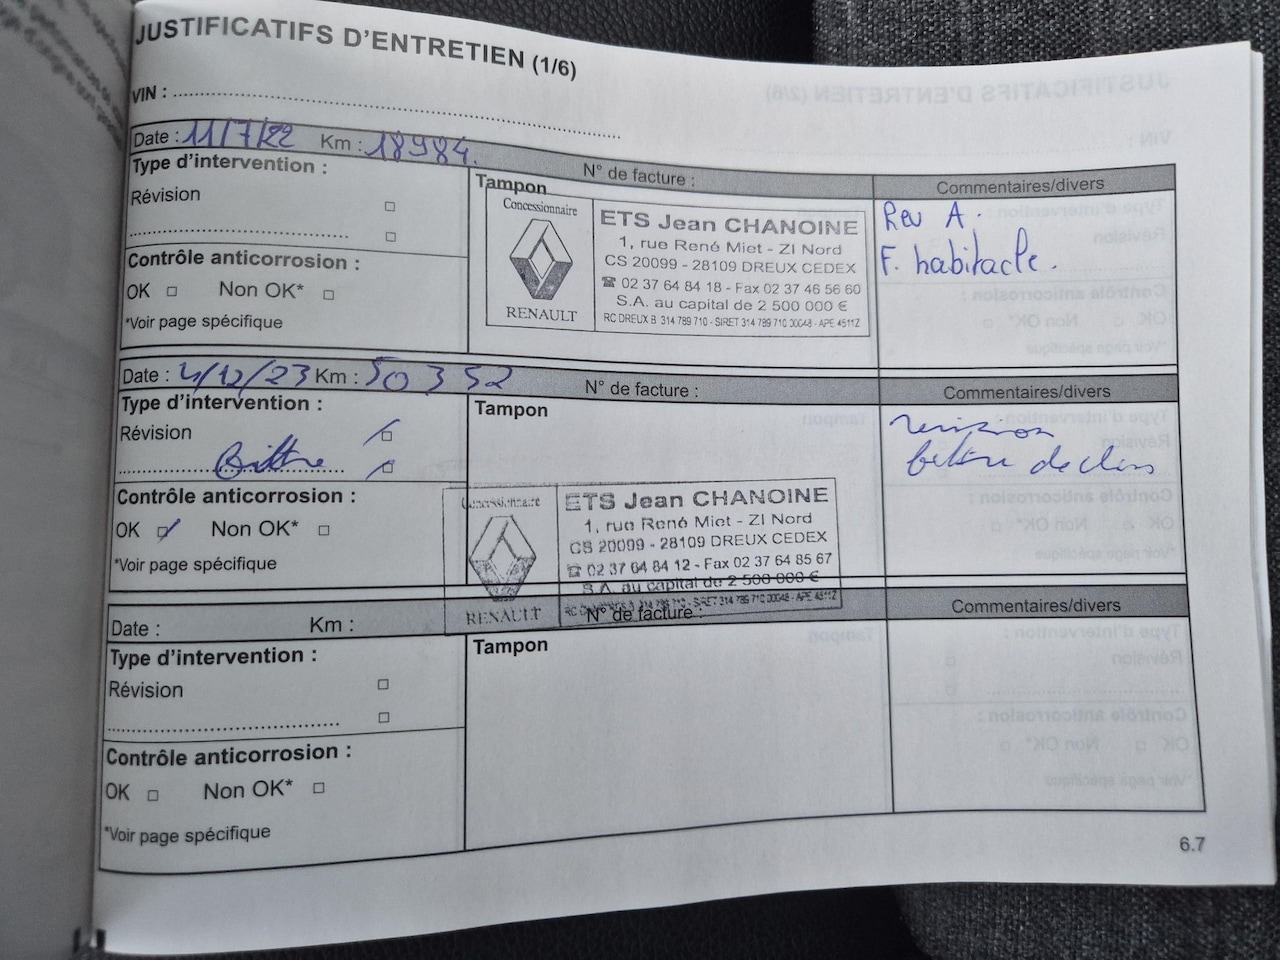 JUSTIFICATIFS D'ENTRETIEN (1/6)
VIN :
Date : 11/7/22 Km : 18984.
N° de facture :
Commentaires/divers
Type d'intervention :
Révision
Contrôle anticorrosion :
OK Non OK*
*Voir page spécifique
Tampon
Concessionnaire
RENAULT
ETS Jean CHANOINE
1, rue René Miet - ZI Nord
CS 20099 - 28109 DREUX CEDEX
☎ 02 37 64 84 18 - Fax 02 37 46 56 60
S.A. au capital de 2 500 000 €
RC DREUX B 314 789 710 - SIRET 314 789 710 00048 - APE 4511Z
Rev A.
F. habitacle.
Date : 4/12/23 Km : 50352
N° de facture :
Commentaires/divers
Type d'intervention :
Révision
Contrôle anticorrosion :
OK Non OK*
*Voir page spécifique
Tampon
Concessionnaire
RENAULT
ETS Jean CHANOINE
1, rue René Miet - ZI Nord
CS 20099 - 28109 DREUX CEDEX
☎ 02 37 64 84 12 - Fax 02 37 64 85 67
S.A. au capital de 2 500 000 €
revision
Date : Km :
N° de facture :
Commentaires/divers
Type d'intervention :
Révision
Contrôle anticorrosion :
OK Non OK*
*Voir page spécifique
Tampon
6.7